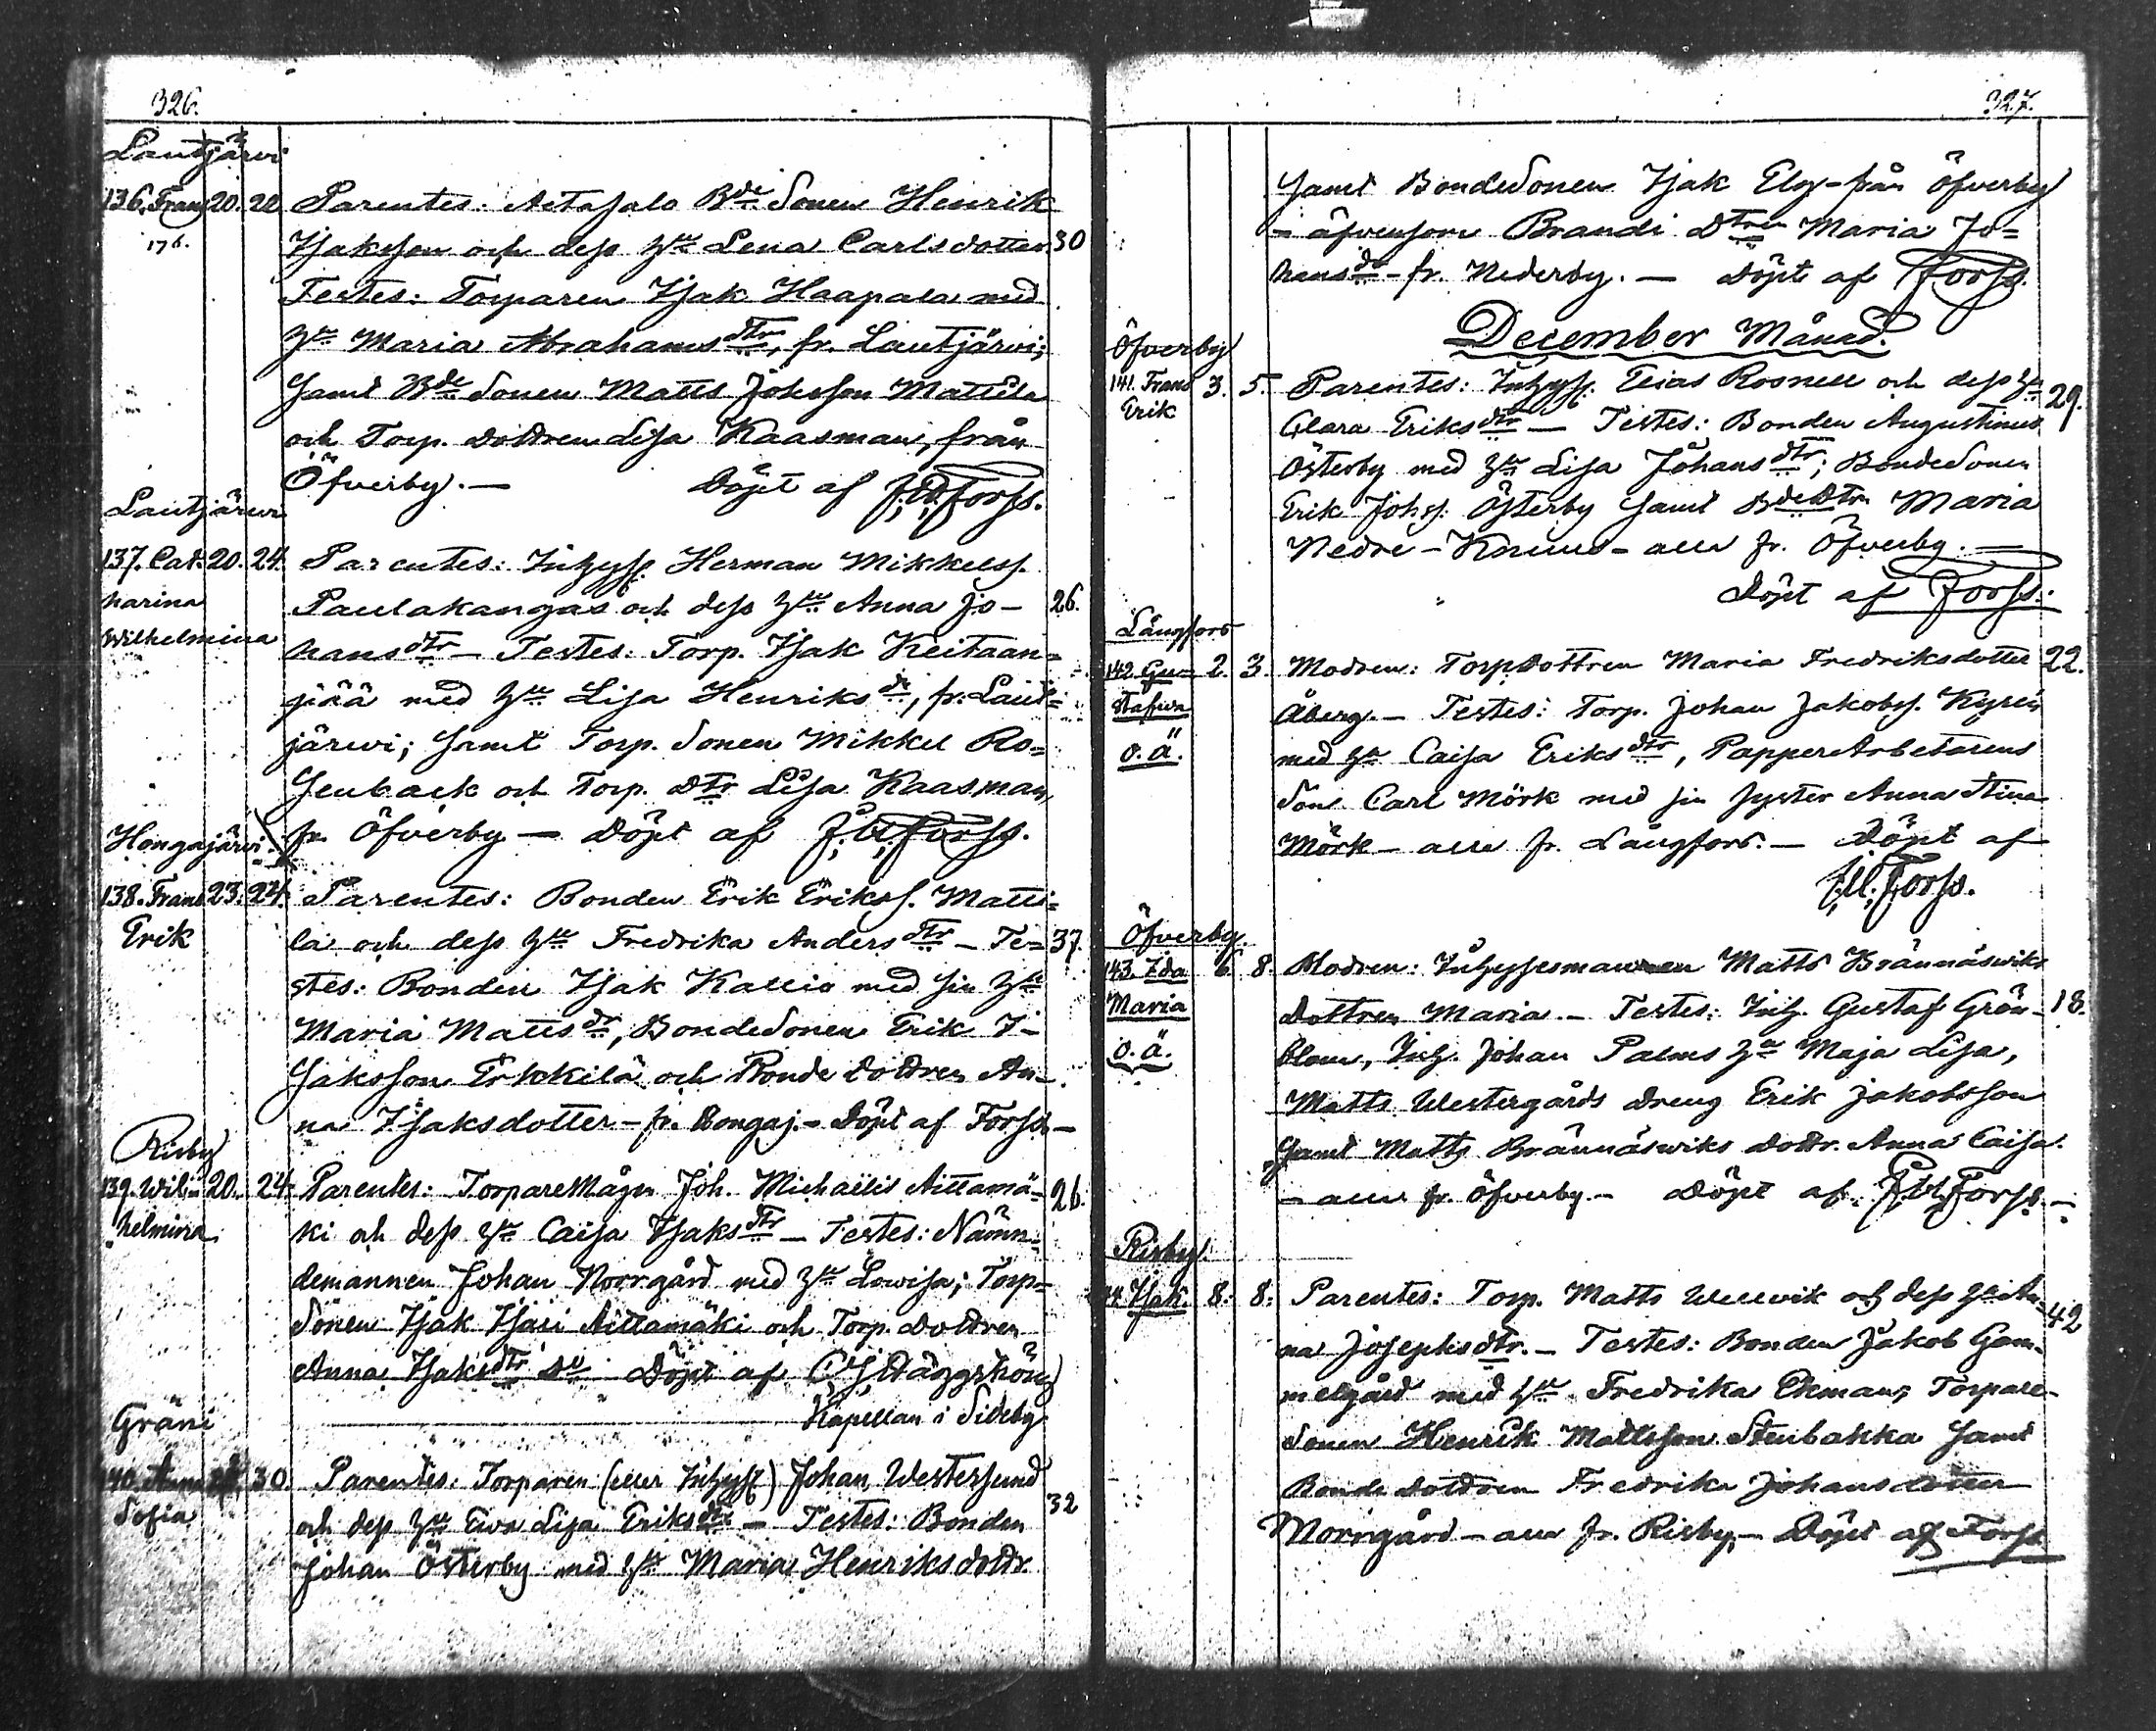 326.
Lautjärvi
136. Frans 20. 22 Parentes: Aitasalo Bde Sonen Henrik
176. Isaksson och dess Hu Lena Carlsdotter 30
Testes: Torparen Isak Haapala med
Hu Maria Abrahamsdtr, fr. Lautjärvi;
Samt Bde Sonen Matts Johsson Mattila
och Torp. dottren Lisa Kaasman, från
Öfverby. — Döpt af J. W. Forss.
Lautjärvi
137. Cat- 20. 24. Parentes: Inhyss. Herman Mikkelss.
harina Paulakangas och dess Hu Anna Jo- 26.
Wilhelmina hansdtr — Testes: Torp. Isak Keitaan-
pää med Hu Lisa Henriksdr, fr. Laut-
järvi; Samt Torp. Sonen Mikkel Ro-
senback och Torp. dtr Lisa Kaasman,
Hongajärvi. fr. Öfverby — Döpt af J. W. Forss.
138. Frans 23. 24. Parentes: Bonden Erik Erikss. Matti-
Erik la och dess Hu Fredrika Andersdtr — Te- 37.
stes: Bonden Isak Kallio med sin Hu
Maria Mattsdr, BondeSonen Erik I-
saksson Erkkilä och Bonde dottren An-
na Isaksdotter — fr. Hongaj. — Döpt af Forss —
Risby
139. Wil- 20. 24. Parentes: TorpareMågen Joh. Michaelis Aittamä- 26.
helmina ki och dess Hu Caisa Isaksdtr — Testes: Nämn-
demannen Johan Norrgård med Hu Lovisa; Torp-
Sonen Isak Isaci Aittamäki och Torp. dottren
Anna Isaksdtr Döpt af Däggström
Kapellan i Sideby
Gräni
140. Anna 30. Parentes: Torparen (eller Inhyss) Johan Westersund
Sofia och dess Hu Eva Lisa Eriksdtr — Testes: Bonden 32
Johan Österby med Hu Maria Henriksdottr.
327.
Samt BondeSonen Isak Elg — från Öfverby
— äfvensom Brandi Dtren Maria Jo-
hansdr — fr. Nederby. — Döpt af Forss.
December Månad.
Öfverby
141. Frans 3. 5. Parentes: Inhyss. Elias Rosnell och dess Hu 29.
Erik Clara Eriksdtr — Testes: Bonden Augustinus
Österby med Hu Lisa Johansdtr; BondeSonen
Erik Johss. Österby Samt Bdedtr. Maria
Nedre-Knuus — alla fr. Öfverby. —
Döpt af Forss.
Långfors
142 Gu- 2. 3. Modren: Torpdottren Maria Fredriksdotter 22.
stafva Åberg. — Testes: Torp. Johan Jakobss. Kyrén
o.ä. med Hu Caisa Eriksdtr, PappersArbetarens
Son Carl Mörk med sin syster Anna Stina
Mörk — alla fr. Långfors. — Döpt af
J. W. Forss.
Öfverby.
143. Ida 6. 8. Modren: Inhyssesmannen Matts Brännäsviks
Maria dottren Maria. — Testes: Inh. Gustaf Grön- 18.
o.ä. blom, Inh. Johan Palms Hu Maja Lisa,
Matts Westergårds dreng Erik Jakobsson
Samt Matts Brännäsviks dottr. Anna Caisa.
— alla fr. Öfverby. — Döpt af J. W. Forss. —
Risby.
144 Isak. 8. 8. Parentes: Torp. Matts Wellvik och dess Hu An- 42
na Josephsdtr. — Testes: Bonden Jakob Gam-
melgård med Hu Fredrika Ekman; Torpare-
Sonen Henrik Mattsson Stenbakka Samt
Bonde dottren Fredrika Johansdotter
Norrgård — alla fr. Risby, — Döpt af Forss